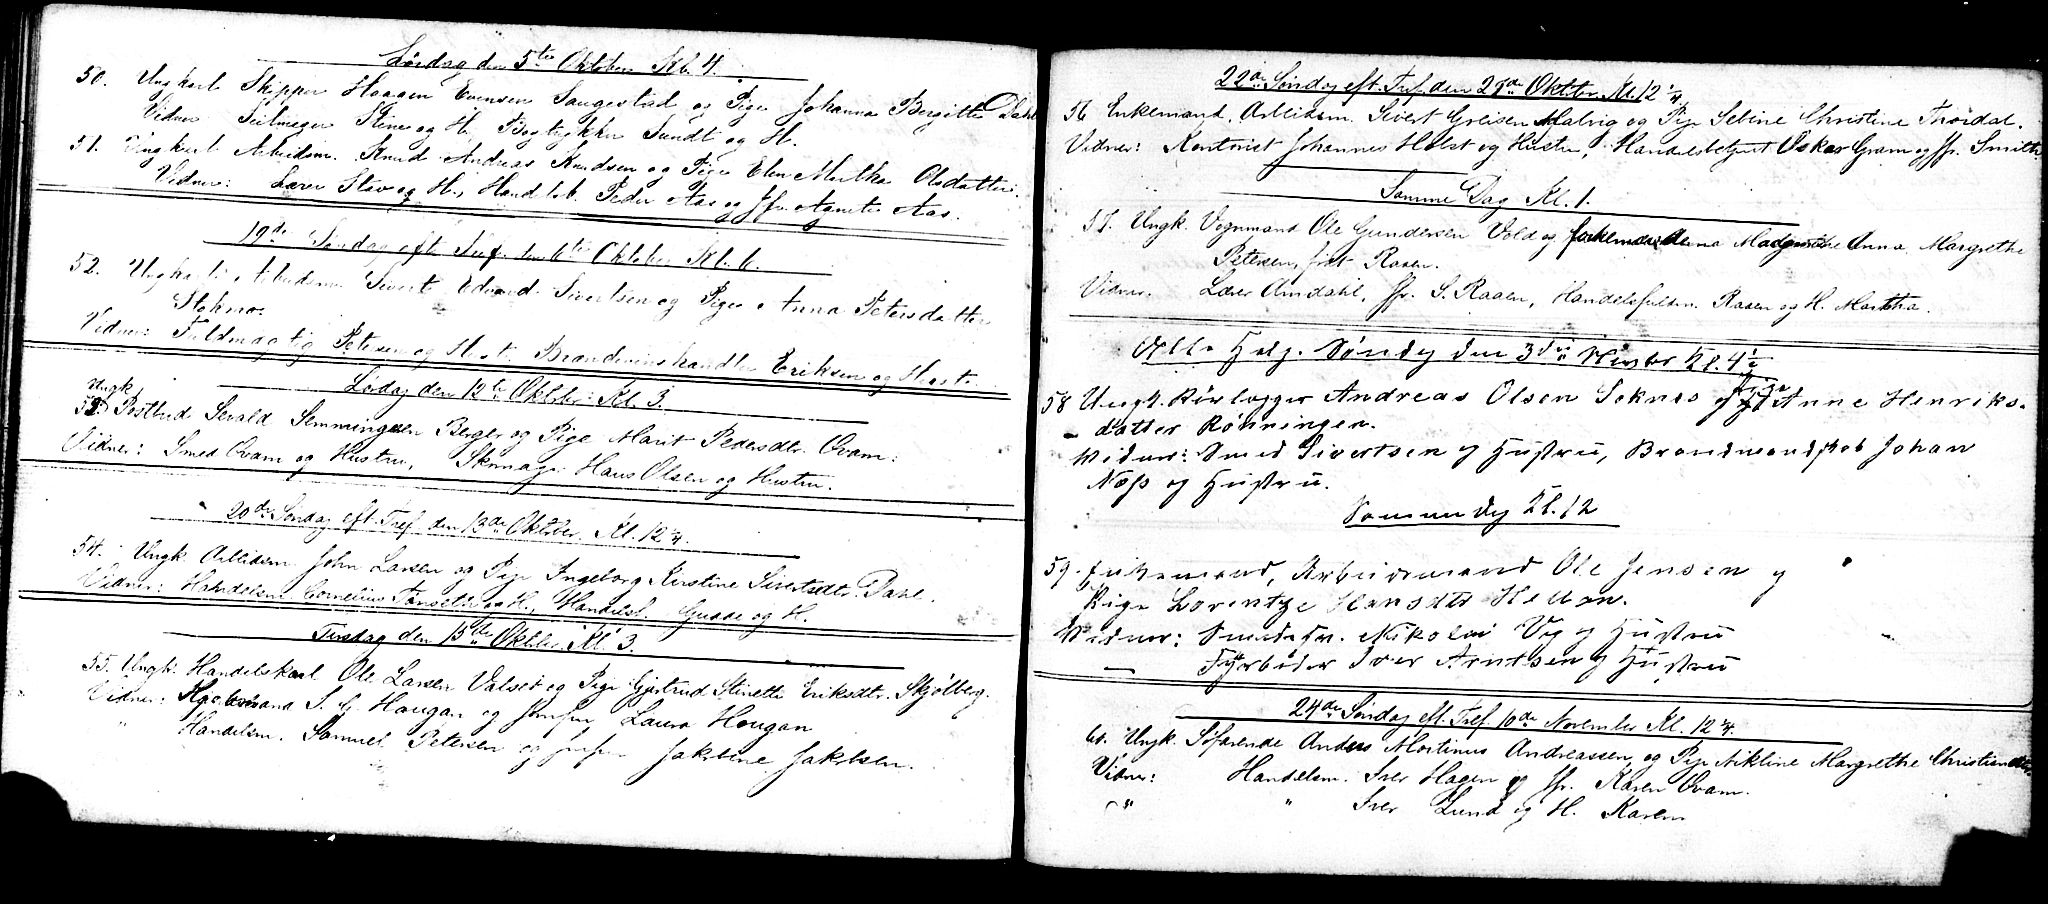 Lørdag den 5te Oktober Kl. 4.
50. Ungkarl Skipper Haagen Evensen Saugestad og Pige Johanna Bergitte Dahl
Vidner Seilmager Stene og H. Bogtrykker Sundt og H.
51. Ungkarl Arbeidsm. Knud Andreas Knudsen og Pige Elen Martha Olsdatter.
Vidner: Lærer Stav og H., Handelsb. Peder Aas og Jfr. Agnete Aas.
19de Søndag eft. Tref. den 6te Oktober Kl. 6.
52. Ungkarl Arbeidsm. Sivert Edvard Sivertsen og Pige Anna Petersdatter
Stokmo.
Vidner: Fuldmægtig Petersen og Hustr. Brændevinshandler Eriksen og Hustr.
Lørdag den 12te Oktober Kl. 3.
53. Ungk. Postbud Sevald Semmingsen Berger og Pige Marit Pedersdtr. Qvam.
Vidner: Smed Qvam og Hustru, Skomag. Hans Olsen og Hustru.
20de Søndag eft. Tref. den 13de Oktober Kl. 12 1/4.
54. Ungk. Arbeidsm. John Larsen og Pige Ingeborg Kirstine Sivertsdtr. Dahl.
Vidner: Handelsm. Cornelius Tønseth og H., Handelsf. Gusse og H.
Tirsdag den 15de Oktober Kl. 3.
55. Ungk. Handelskarl Ole Larsen Valset og Pige Gjertrud Stinette Eriksdtr. Skjølberg.
Vidner: Kjøbmand S. C. Hougan og Jomfru Laura Hougan
" Handelsm. Samuel Petersen og Jomfru Jakobine Jakobsen.
22de Søndag eft. Tref. den 27de Oktober Kl. 12 1/4
56 Enkemand, Arbeidsm. Sivert Greisen Malvig og Pige Sebine Christine Thordal.
Vidner: Kontorist Johannes Holst og Hustru, Handelsbetjent Oskar Gram og Jfr. Smith
Samme Dag Kl. 1.
57. Ungk. Vognmand Ole Gundersen Vold og Anna Margrethe
Petersen, født Raaen.
Vidner. Lærer Amdahl, Jfr. S. Raaen, Handelsfuldm. Raaen og H. Martha.
Alle Helg. Søndag den 3die Novbr Kl. 4 1/2
58 Ungk. Rørlægger Andreas Olsen Soknes og Pige Anne Henriks-
datter Rønningen.
Vidner: Smed Sivertsen og Hustru, Brandmandskab Johan
Næss og Hustru.
Samme Dag Kl. 12
59. Enkemand, Arbeidsmand Ole Jensen og
Pige Lorentze Hansdtr
Vidner: Nikolai Vig og Hustru
Fyrbøder Iver Arntsen og Hustru
24de Søndag eft. Tref. 10de November Kl. 12 1/4.
60. Ungk. Søfarende Anders Martinus Andreassen og Pige Nikline Margrethe
Vidner: Handelsm. Iver Hagen og Jfr. Karen Qvam.
" " Iver Lund og H. Karen